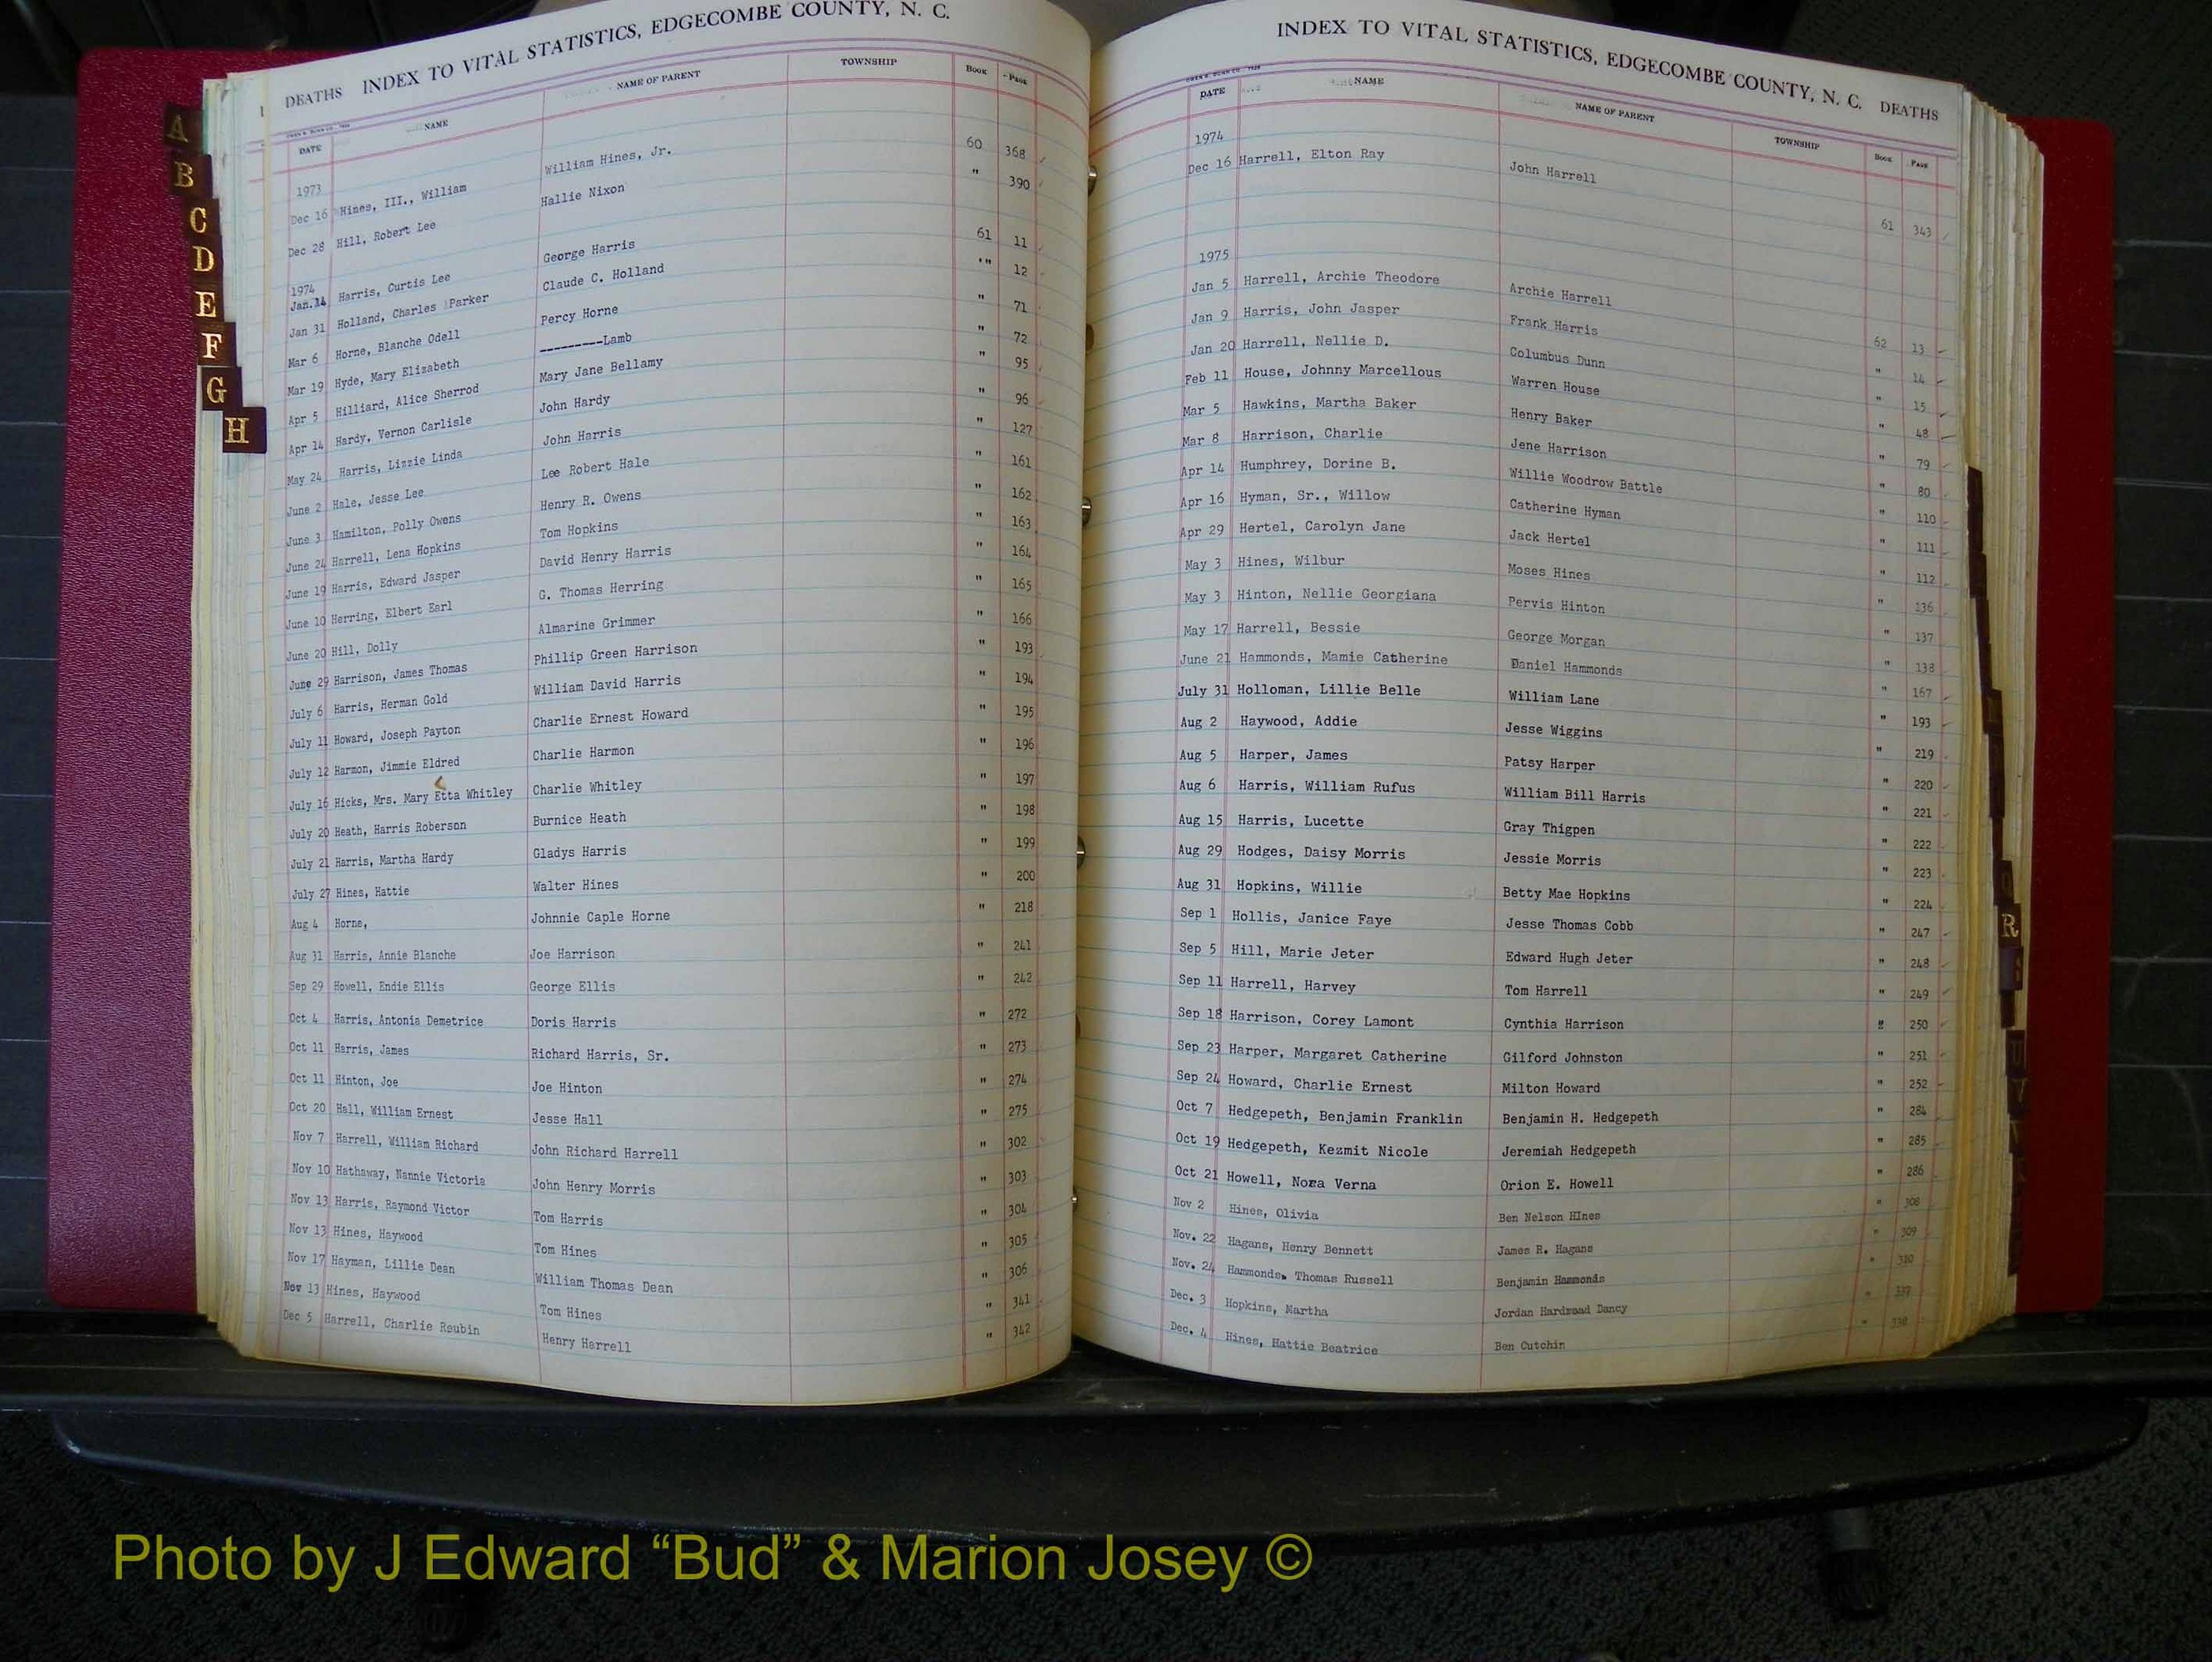 DEATHS INDEX TO VITAL STATISTICS, EDGECOMBE COUNTY, N. C.
DATE NAME NAME OF PARENT TOWNSHIP Book Page
1973
Dec 16 Hines, III., William William Hines, Jr. 60 368
Dec 28 Hill, Robert Lee Hallie Nixon " 390
1974
Jan. 14 Harris, Curtis Lee George Harris 61 11
Jan 31 Holland, Charles Parker Claude C. Holland '" 12
Mar 6 Horne, Blanche Odell Percy Horne " 71
Mar 19 Hyde, Mary Elizabeth ---------Lamb " 72
Apr 5 Hilliard, Alice Sherrod Mary Jane Bellamy " 95
Apr 14 Hardy, Vernon Carlisle John Hardy " 96
May 24 Harris, Lizzie Linda John Harris " 127
June 2 Hale, Jesse Lee Lee Robert Hale " 161
June 3 Hamilton, Polly Owens Henry R. Owens " 162
June 24 Harrell, Lena Hopkins Tom Hopkins " 163
June 19 Harris, Edward Jasper David Henry Harris " 164
June 10 Herring, Elbert Earl G. Thomas Herring " 165
June 20 Hill, Dolly Almarine Grimmer " 166
June 29 Harrison, James Thomas Phillip Green Harrison " 193
July 6 Harris, Herman Gold William David Harris " 194
July 11 Howard, Joseph Payton Charlie Ernest Howard " 195
July 12 Harmon, Jimmie Eldred Charlie Harmon " 196
July 16 Hicks, Mrs. Mary Etta Whitley Charlie Whitley " 197
July 20 Heath, Harris Roberson Burnice Heath " 198
July 21 Harris, Martha Hardy Gladys Harris " 199
July 27 Hines, Hattie Walter Hines " 200
Aug 4 Horne, Johnnie Caple Horne " 218
Aug 31 Harris, Annie Blanche Joe Harrison " 241
Sep 29 Howell, Endie Ellis George Ellis " 242
Oct 4 Harris, Antonia Demetrice Doris Harris " 272
Oct 11 Harris, James Richard Harris, Sr. " 273
Oct 11 Hinton, Joe Joe Hinton " 274
Oct 20 Hall, William Ernest Jesse Hall " 275
Nov 7 Harrell, William Richard John Richard Harrell " 302
Nov 10 Hathaway, Nannie Victoria John Henry Morris " 303
Nov 13 Harris, Raymond Victor Tom Harris " 304
Nov 13 Hines, Haywood Tom Hines " 305
Nov 17 Hayman, Lillie Dean William Thomas Dean " 306
Nov 13 Hines, Haywood Tom Hines " 341
Dec 5 Harrell, Charlie Reubin Henry Harrell " 342
A
B
C
D
E
F
G
H
INDEX TO VITAL STATISTICS, EDGECOMBE COUNTY, N. C. DEATHS
DATE NAME NAME OF PARENT TOWNSHIP Book Page
1974
Dec 16 Harrell, Elton Ray John Harrell 61 343
1975
Jan 5 Harrell, Archie Theodore Archie Harrell 62 13
Jan 9 Harris, John Jasper Frank Harris " 14
Jan 20 Harrell, Nellie D. Columbus Dunn " 15
Feb 11 House, Johnny Marcellous Warren House " 48
Mar 5 Hawkins, Martha Baker Henry Baker " 79
Mar 8 Harrison, Charlie Jene Harrison " 80
Apr 14 Humphrey, Dorine B. Willie Woodrow Battle " 110
Apr 16 Hyman, Sr., Willow Catherine Hyman " 111
Apr 29 Hertel, Carolyn Jane Jack Hertel " 112
May 3 Hines, Wilbur Moses Hines " 136
May 3 Hinton, Nellie Georgiana Pervis Hinton " 137
May 17 Harrell, Bessie George Morgan " 138
June 21 Hammonds, Mamie Catherine Daniel Hammonds " 167
July 31 Holloman, Lillie Belle William Lane " 193
Aug 2 Haywood, Addie Jesse Wiggins " 219
Aug 5 Harper, James Patsy Harper " 220
Aug 6 Harris, William Rufus William Bill Harris " 221
Aug 15 Harris, Lucette Gray Thigpen " 222
Aug 29 Hodges, Daisy Morris Jessie Morris " 223
Aug 31 Hopkins, Willie Betty Mae Hopkins " 224
Sep 1 Hollis, Janice Faye Jesse Thomas Cobb " 247
Sep 5 Hill, Marie Jeter Edward Hugh Jeter " 248
Sep 11 Harrell, Harvey Tom Harrell " 249
Sep 18 Harrison, Corey Lamont Cynthia Harrison " 250
Sep 23 Harper, Margaret Catherine Gilford Johnston " 251
Sep 24 Howard, Charlie Ernest Milton Howard " 252
Oct 7 Hedgepeth, Benjamin Franklin Benjamin H. Hedgepeth " 284
Oct 19 Hedgepeth, Kezmit Nicole Jeremiah Hedgepeth " 285
Oct 21 Howell, Nora Verna Orion E. Howell " 286
Nov 2 Hines, Olivia Ben Nelson HInes " 308
Nov. 22 Hagans, Henry Bennett James R. Hagans " 309
Nov. 24 Hammonds, Thomas Russell Benjamin Hammonds " 310
Dec. 3 Hopkins, Martha Jordan Dancy "
Dec. 4 Hines, Hattie Beatrice Ben Cutchin " 338
R
Photo by J Edward “Bud” & Marion Josey ©